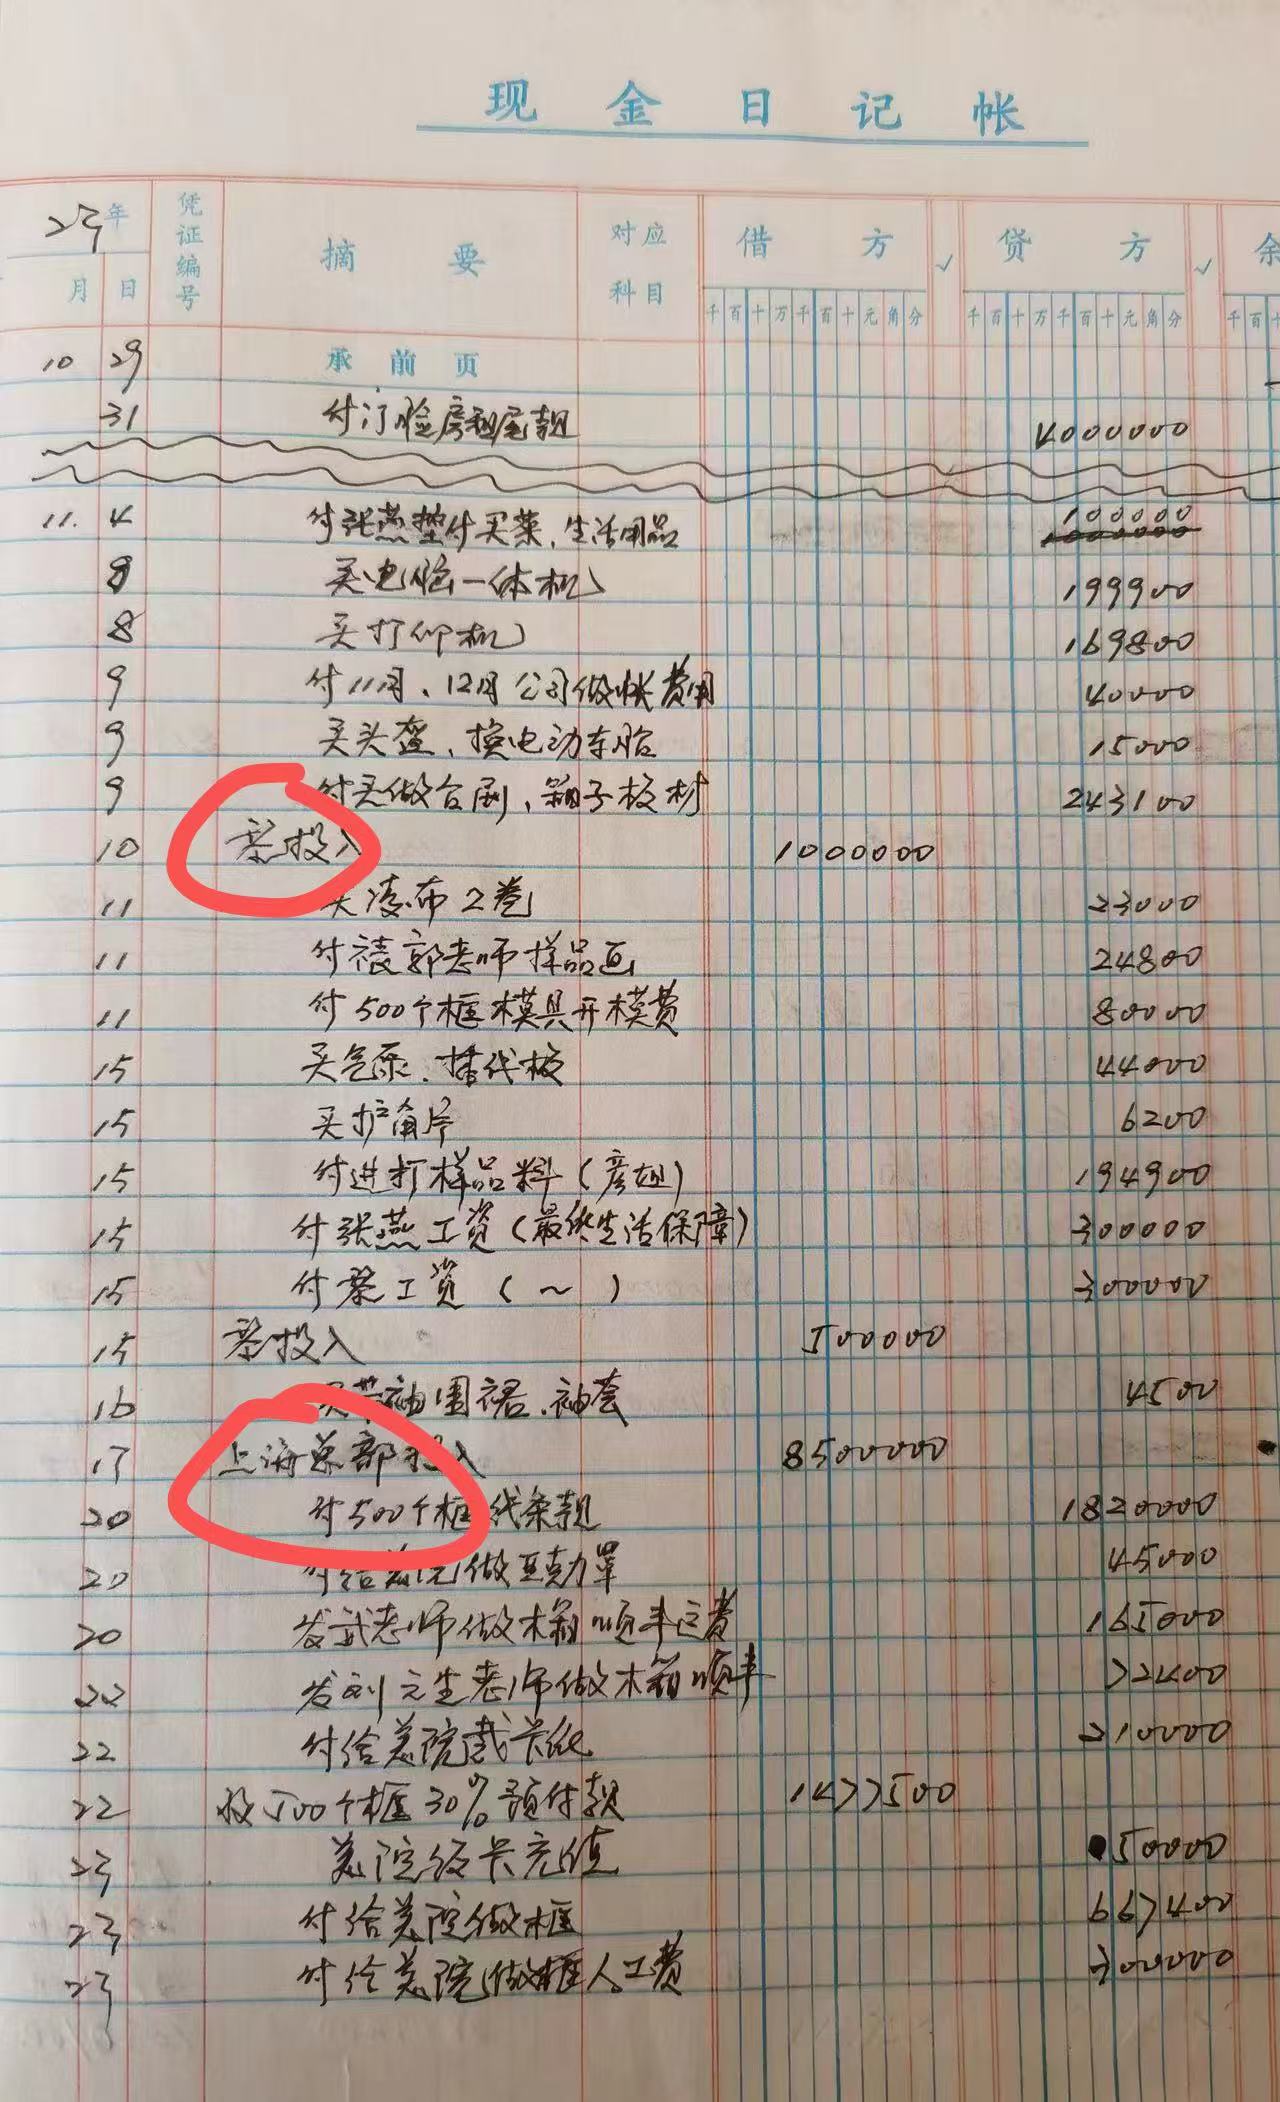 现金日记帐
23年 凭证编号 摘要 对应科目 借方 √ 贷方 √ 余
月 日 千百十万千百十元角分 千百十万千百十元角分 千百十
10 29 承前页
31 付 房租尾款 4000000
11. 4 付张燕垫付买菜、生活用品 100000
8 买电脑一体机 199900
8 买打印机 169800
9 付11月、12月公司做帐费用 40000
9 买头盔、换电动车胎 15000
9 付买做台面、箱子板材 243100
10 投入 1000000
11 买 布2卷 23000
11 付裱郭老师样品画 24800
11 付500个框模具开模费 80000
15 买气泵、 板 44000
15 买护角片 6200
15 付进打样品料(彦姐) 194900
15 付张燕工资(最终生活保障) 300000
15 付 工资(〜) 300000
15 投入 500000
16 买带袖围裙、袖套 4500
17 上海总部投入 8500000
20 付500个框线条款 1820000
20 付给美院做亚克力罩 45000
20 发武老师做木箱顺丰运费 165000
22 发刘元生老师做木箱顺丰 72400
22 付给美院裁卡纸 210000
22 收500个框30%预付款 1477500
23 美院饭卡充值 50000
23 付给美院做框 667400
23 付给美院做框人工费 300000